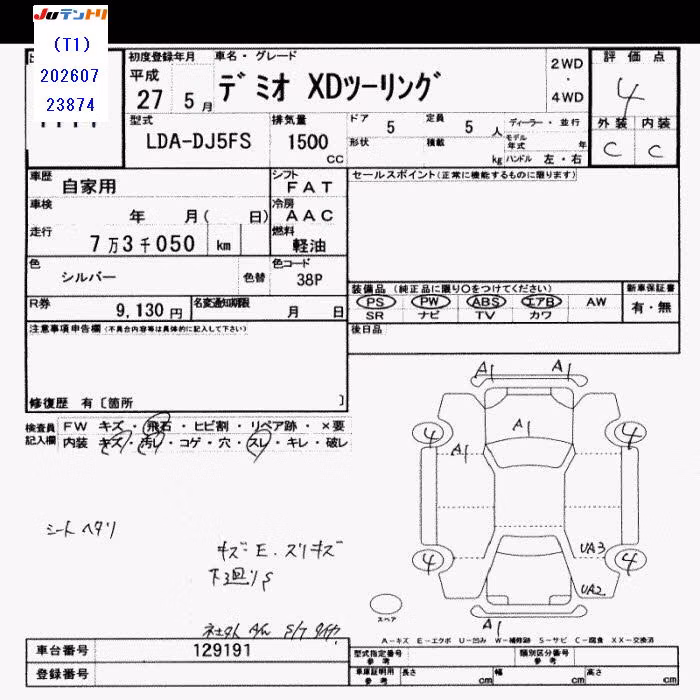 Juテントリ
(T1)
202607
23874
初度登録年月 車名・グレード
平成
27 5月
デミオ XDツーリング
2WD
・
4WD
評価点
4
外装 内装
C C
型式
LDA-DJ5FS
排気量
1500
CC
ドア 5 定員 5 人
形状 積載 kg
ディーラー・並行
モデル年式 年
ハンドル 左・右
車歴 自家用
シフト FAT
車検 年 月( 日)
冷房 AAC
走行 7万3千050 km
燃料 軽油
色 シルバー 色替
色コード 38P
R券 9,130円
名変通知期限 月 日
セールスポイント(正常に機能するものに限ります)
装備品 (純正品に限り○をつけてください)
PS PW ABS エアB AW
SR ナビ TV カワ
新車保証書
有・無
後日品
注意事項申告欄(不具合内容等は具体的に記入して下さい)
修復歴 有〔箇所 〕
検査員記入欄
FW キズ・飛石・ヒビ割・リペア跡・×要
内装 キズ・汚レ・コゲ・穴・スレ・キレ・破レ
シートヘタリ
キズ・E.スリキズ
下廻りS
A1 A1
A1
A1
4 4
4 4
UA3
UA2
A1
スペア
A-キズ E-エクボ U-凹み W-補修跡 S-サビ C-腐食 XX-交換済
車台番号 129191
登録番号
型式指定番号 参考
類別区分番号 参考
車庫証明用 参考
長さ cm 幅 cm 高さ cm